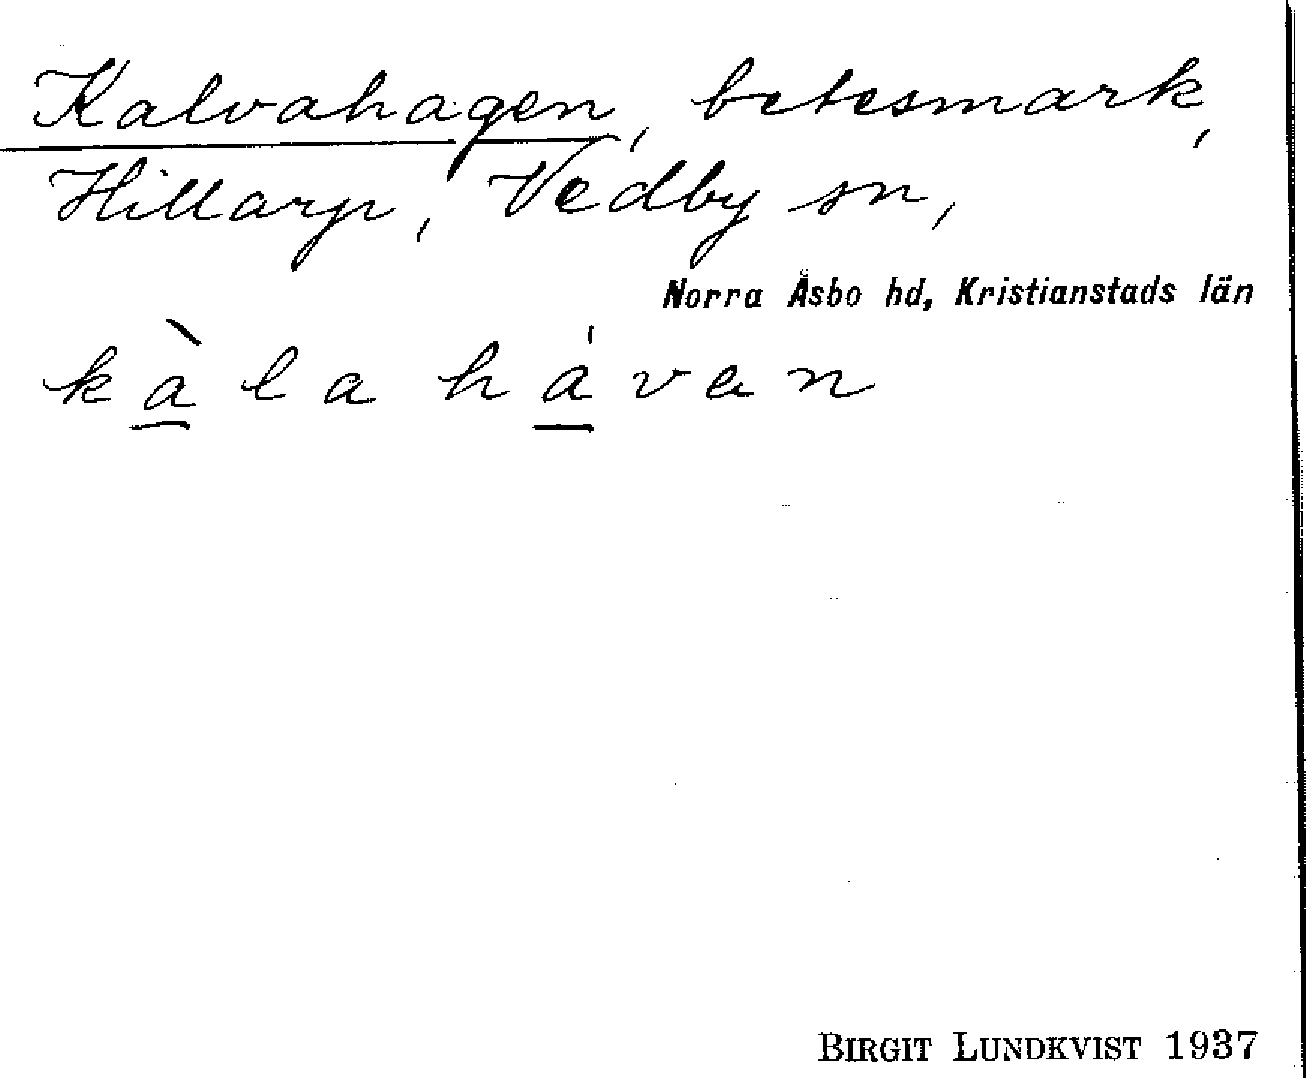 Kalvahagen, betesmark,
Hillarp, Vedby sn,
Norra Åsbo hd, Kristianstads län
kàla háven
BIRGIT LUNDKVIST 1937